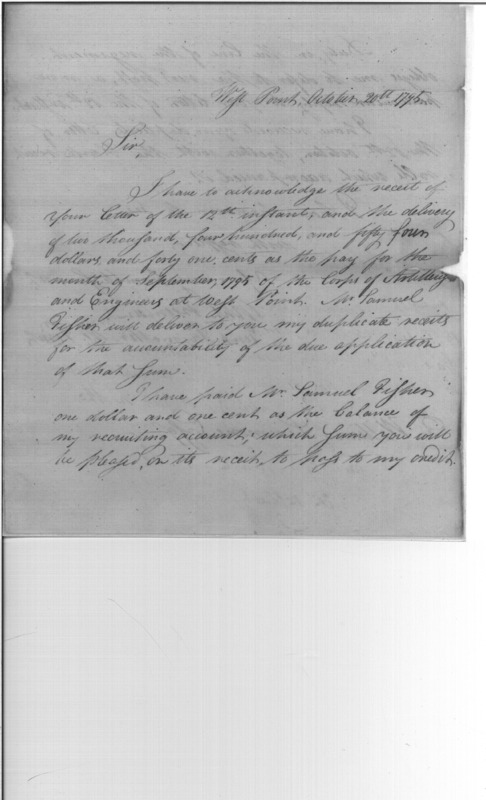 West Point, October 20th 1795.
Sir,
I have to acknowledge the receit of
your letter of the 12th instant, and the delivery
of two thousand, four hundred, and fifty four
dollars, and forty one, cents as the pay for the
month of September, 1795 of the Corps of Artillery
and Engineers at West Point. Mr. Samuel
Fisher will deliver to you my duplicate receits
for the accountability of the due application
of that Sum.
I have paid Mr. Samuel Fisher
one dollar and one cent as the balance of
my recruiting account; which Sum you will
be pleased, on its receit, to pass to my credit.